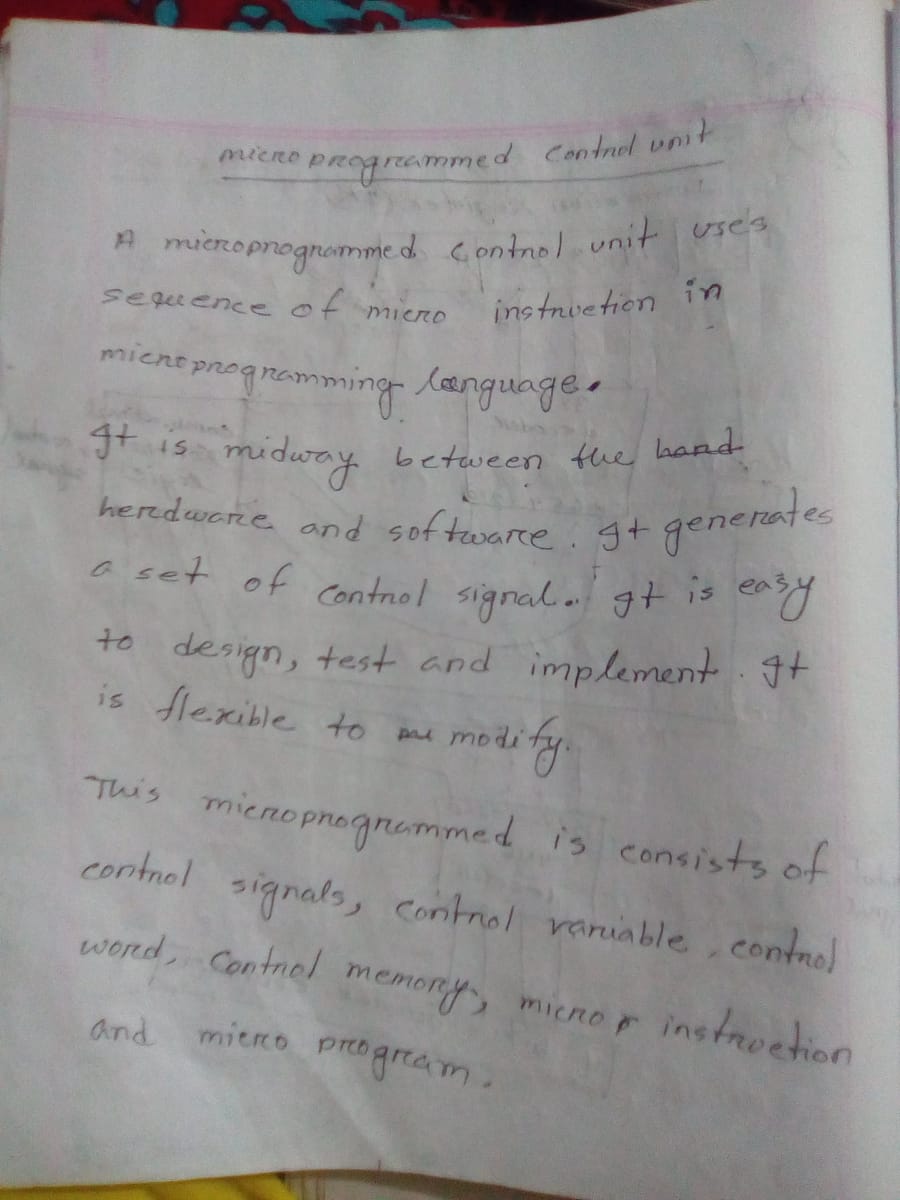 micro programmed control unit
A microprogrammed control unit uses
sequence of micro instruction in
microprogramming language.
It is midway between the hard
herdware and software. It generates
a set of control signal. It is easy
to design, test and implement. It
is flexible to modify.
This microprogrammed is consists of
control signals, control variable, control
word, control memory, micro instruction
and micro program.